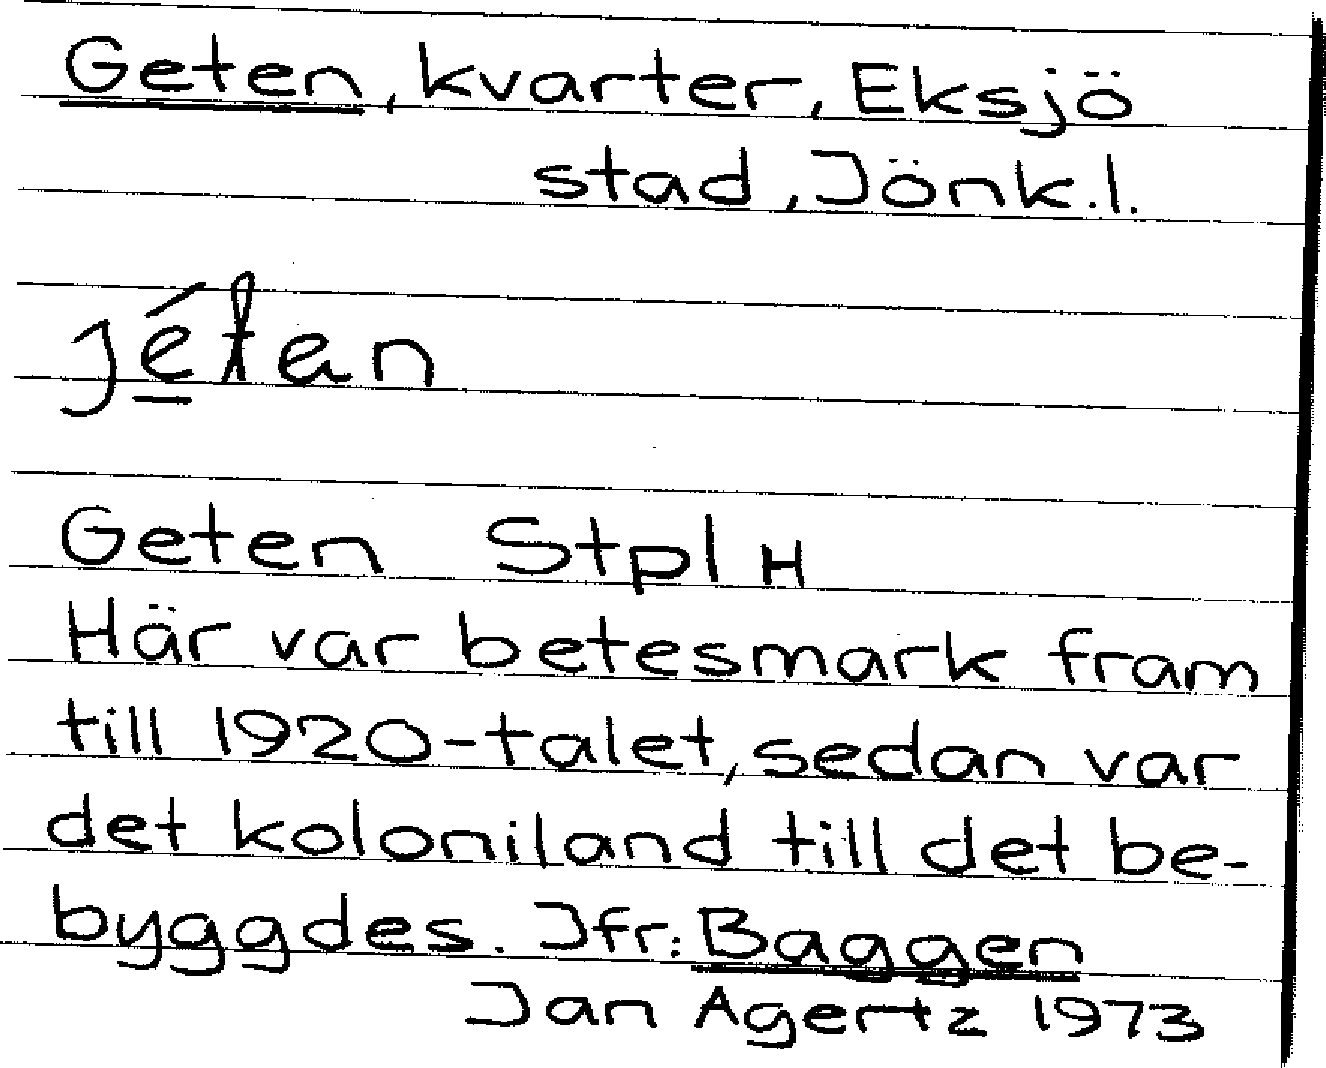 Geten, kvarter, Eksjö
stad, Jönk.l.
jétan
Geten Stpl H
Här var betesmark fram
till 1920-talet, sedan var
det koloniland till det be-
byggdes. Jfr: Baggen
Jan Agertz 1973